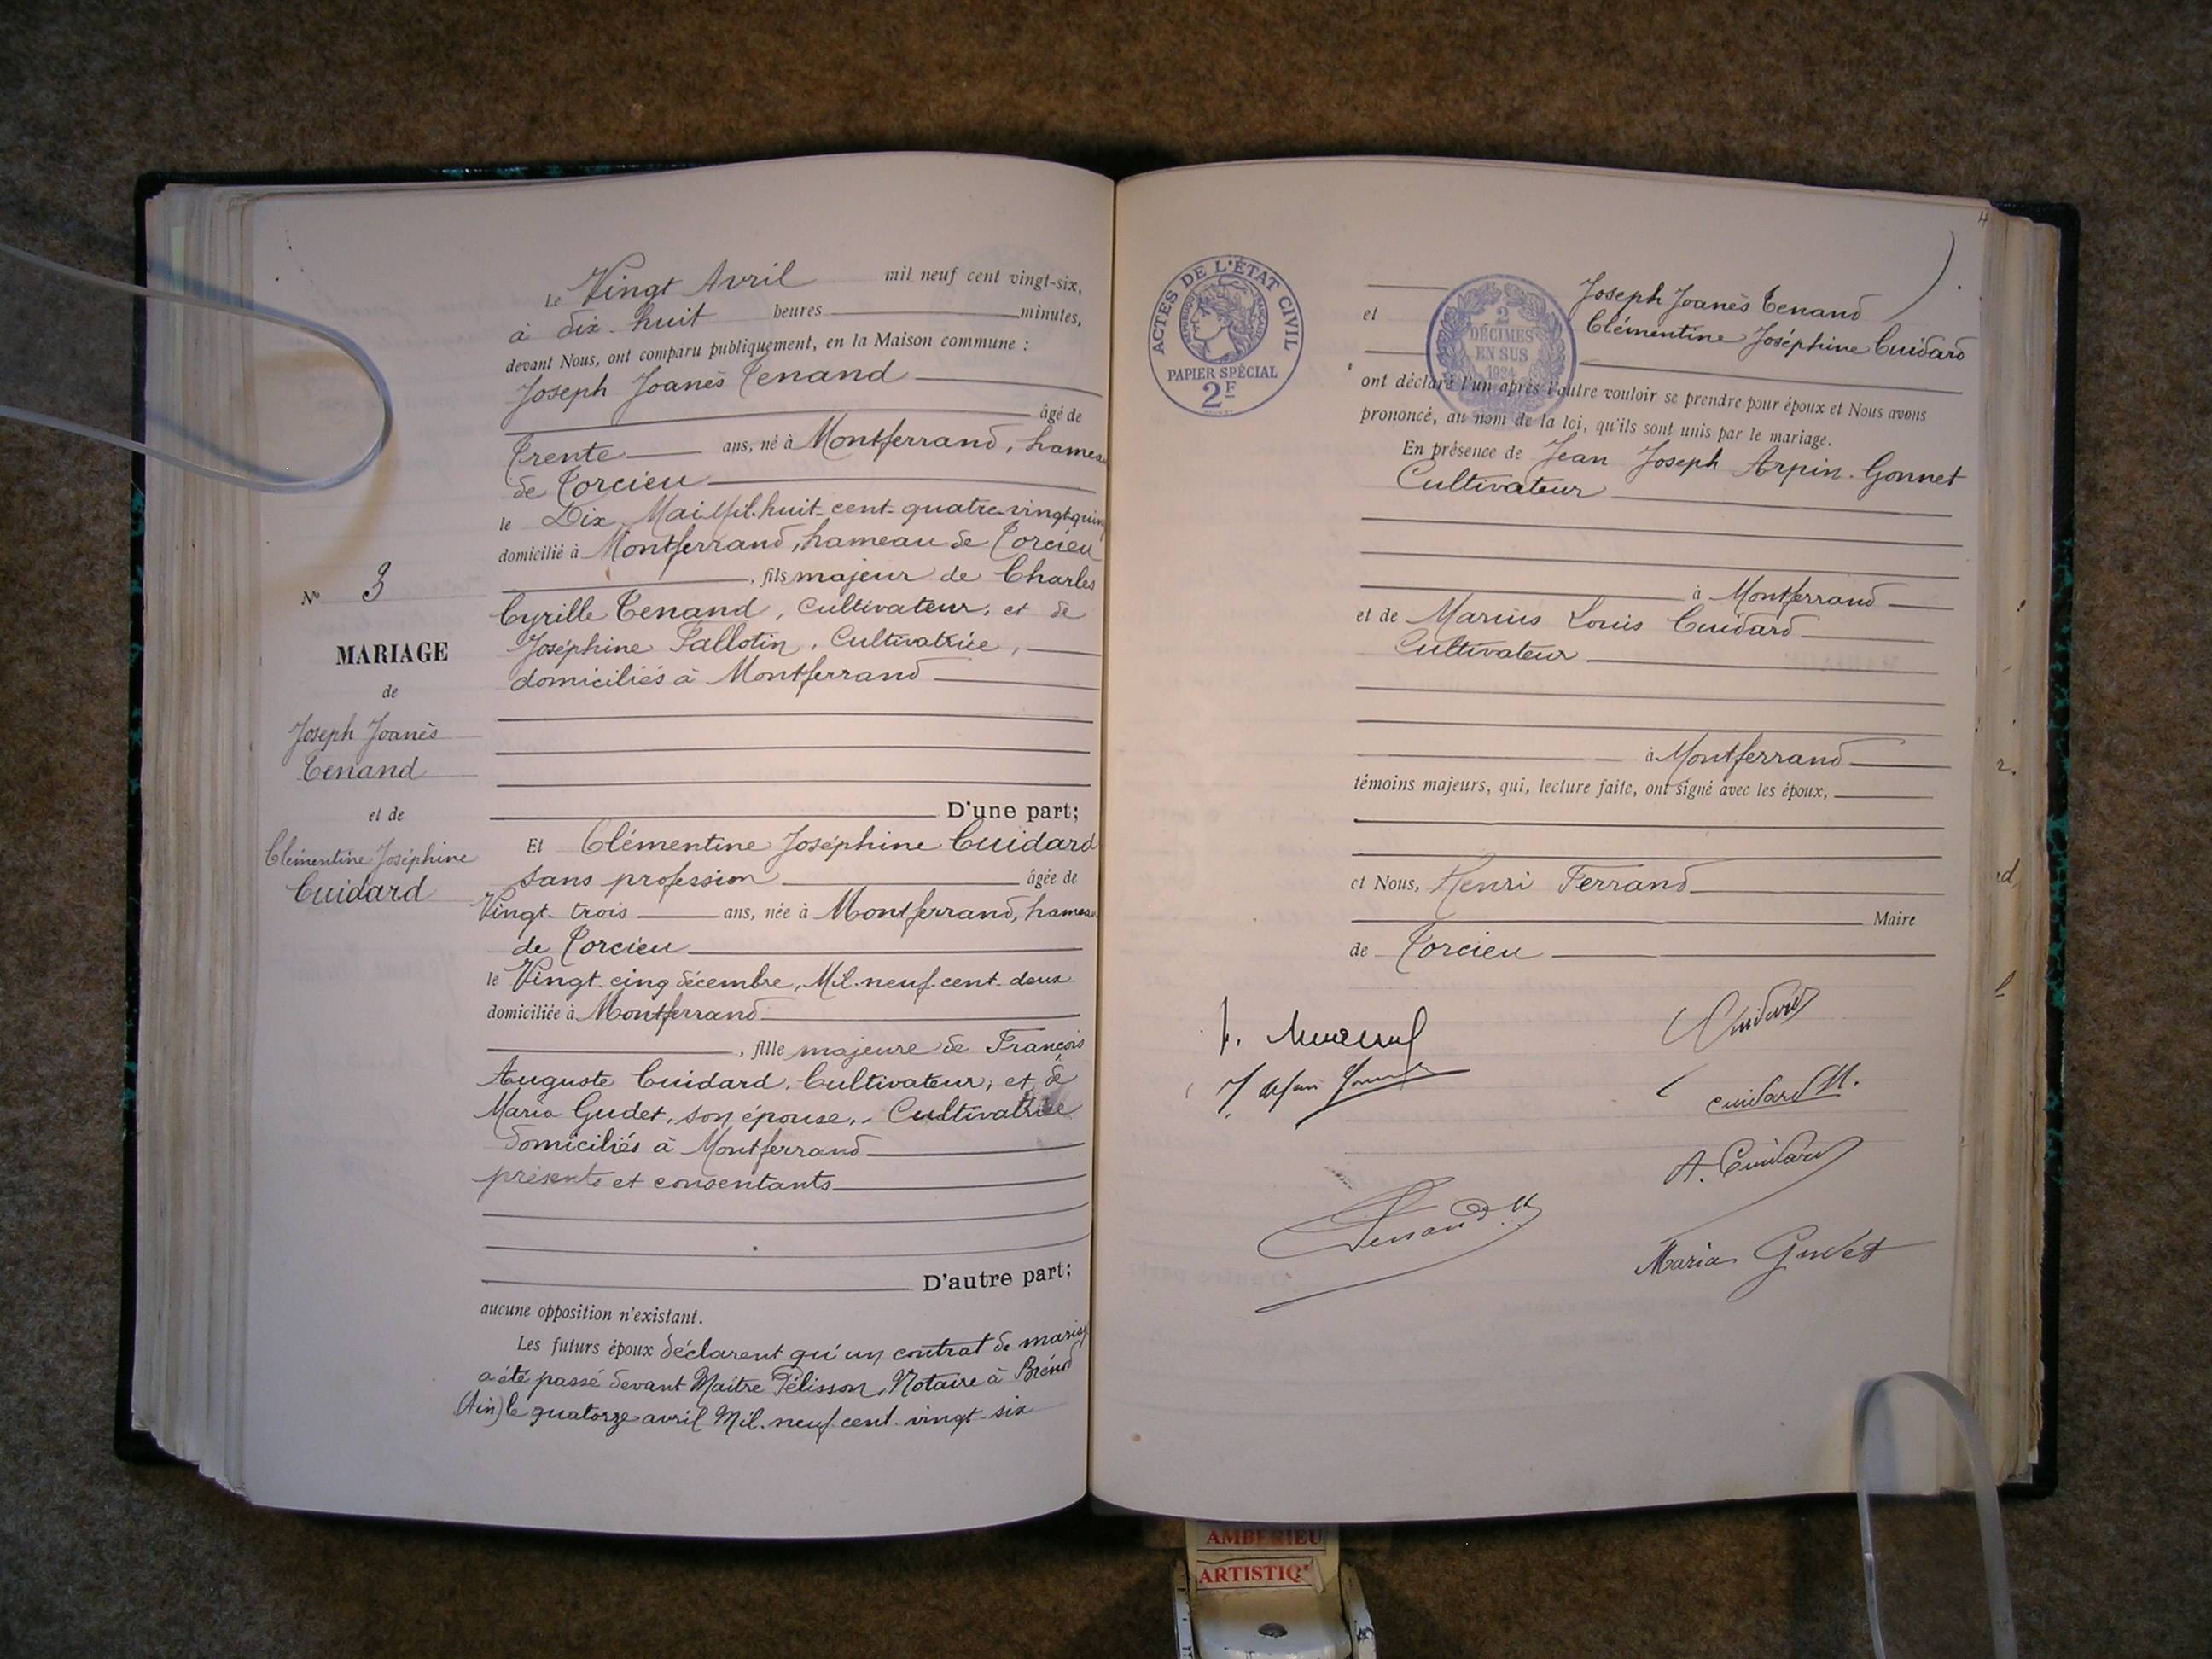 Le Vingt Avril mil neuf cent vingt-six,
à dix-huit heures minutes,
devant Nous, ont comparu publiquement, en la Maison commune :
Joseph Joanès Tenand
âgé de
Trente ans, né à Montferrand, hameau
de Torcieu
le Dix Mai Mil-huit-cent-quatre-vingt-quin
domicilié à Montferrand, hameau de Torcieu
, fils majeur de Charles
Cyrille Tenand, Cultivateur, et de
Joséphine Pallotin, Cultivatrice,
domiciliés à Montferrand
D'une part;
Et Clémentine Joséphine Cuidard
sans profession âgée de
Vingt-trois ans, née à Montferrand, hameau
de Torcieu
le Vingt-cinq décembre, Mil-neuf-cent-deux
domiciliée à Montferrand
, fille majeure de François
Auguste Cuidard, Cultivateur, et de
Maria Gudet, son épouse, Cultivatrice
domiciliés à Montferrand
présents et consentants
D'autre part;
aucune opposition n'existant.
Les futurs époux déclarent qu'un contrat de mariag
a été passé devant Maître Pélisson, Notaire à Brénod
(Ain) le quatorze avril Mil-neuf-cent-vingt-six
N° 3
MARIAGE
de
Joseph Joanès
Tenand
et de
Clémentine Joséphine
Cuidard
4
ACTES DE L'ÉTAT CIVIL
RÉPUBLIQUE FRANÇAISE
PAPIER SPÉCIAL
2F
2
DÉCIMES
EN SUS
1924
Joseph Joanès Tenand
et Clémentine Joséphine Cuidard
ont déclaré l'un après l'autre vouloir se prendre pour époux et Nous avons
prononcé, au nom de la loi, qu'ils sont unis par le mariage.
En présence de Jean Joseph Arpin-Gonnet
Cultivateur
à Montferrand
et de Marius Louis Cuidard
Cultivateur
à Montferrand
témoins majeurs, qui, lecture faite, ont signé avec les époux,
et Nous, Henri Ferrand
Maire
de Torcieu
Cuidard
Cuidard M.
A. Cuidard
Maria Gudet
AMBERIEU
ARTISTIQ